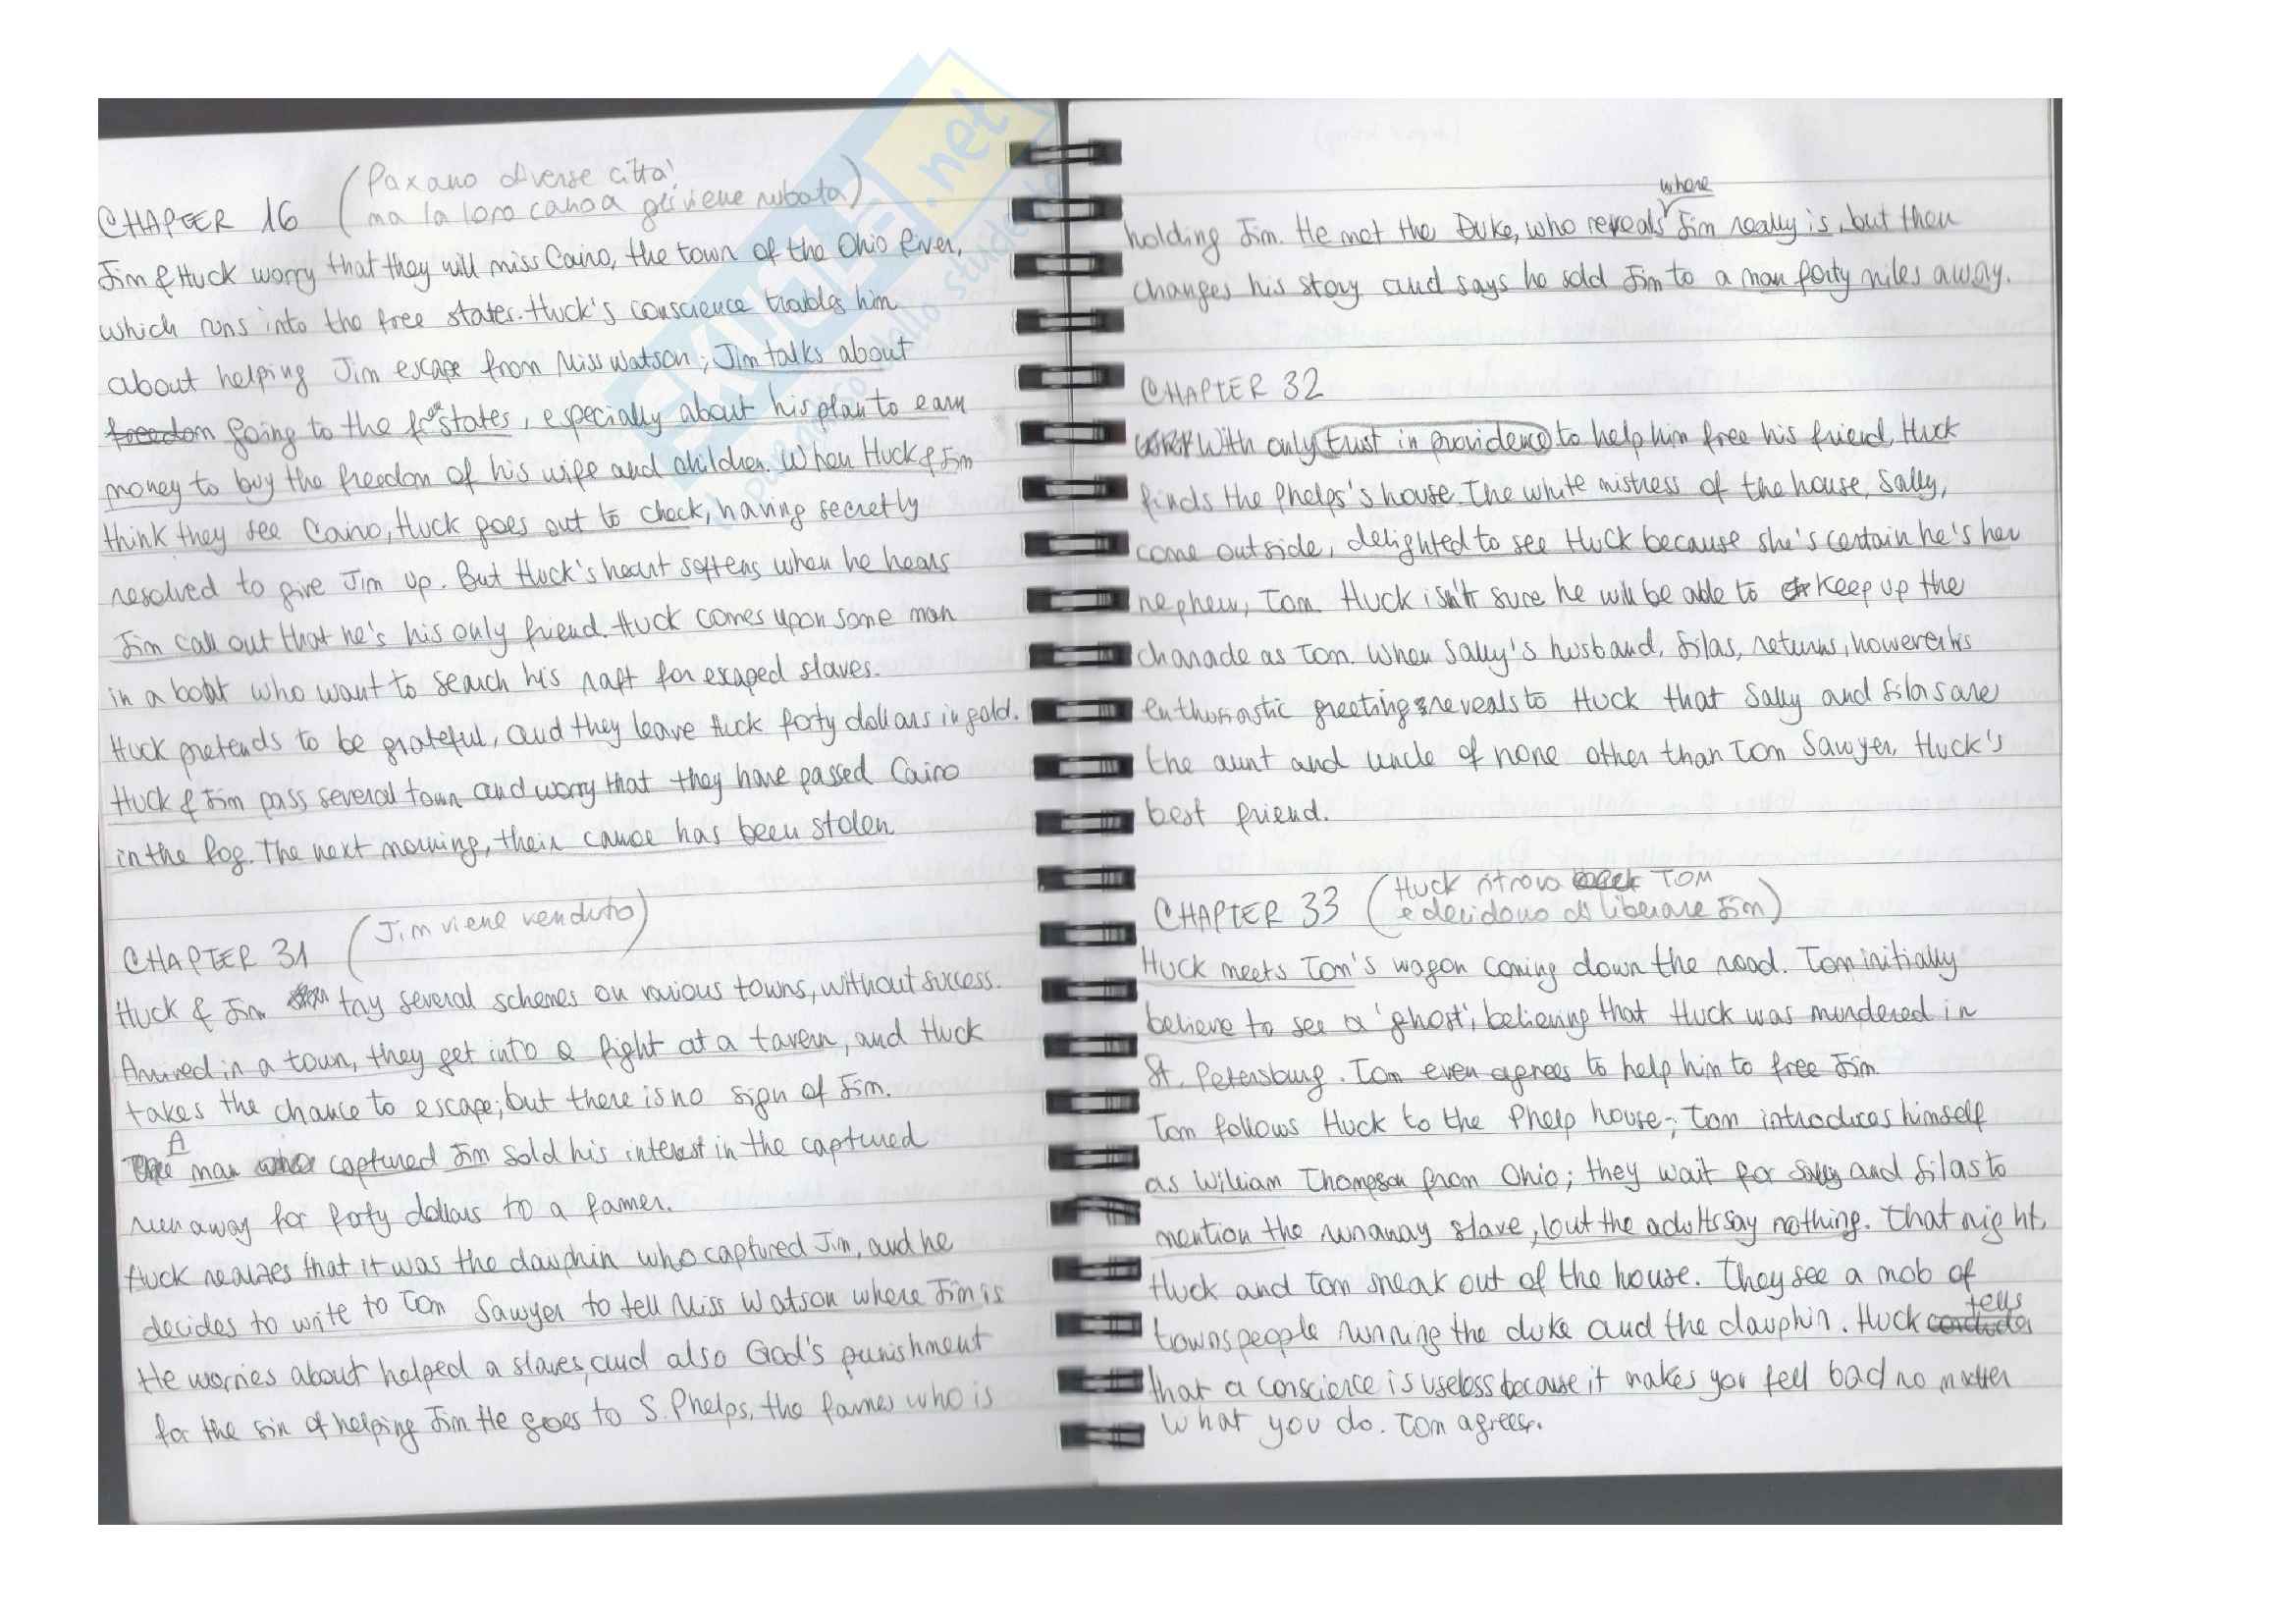 CHAPTER 16 (Passano diverse città,
ma la loro canoa gli viene rubata)
Jim & Huck worry that they will miss Cairo, the town of the Ohio River,
which runs into the free states. Huck's conscience troubles him
about helping Jim escape from Miss Watson; Jim talks about
freedom going to the free states, especially about his plan to earn
money to buy the freedom of his wife and children. When Huck & Jim
think they see Cairo, Huck goes out to check, having secretly
resolved to give Jim up. But Huck's heart softens when he hears
Jim call out that he's his only friend. Huck comes upon some man
in a boat who want to search his raft for escaped slaves.
Huck pretends to be grateful, and they leave Huck forty dollars in gold.
Huck & Jim pass several town and worry that they have passed Cairo
in the fog. The next morning, their canoe has been stolen
CHAPTER 31 (Jim viene venduto)
Huck & Jim try several schemes on various towns, without success.
Arrived in a town, they get into a fight at a tavern, and Huck
takes the chance to escape; but there is no sign of Jim.
The A man who captured Jim sold his interest in the captured
run away for forty dollars to a farmer.
Huck realizes that it was the dauphin who captured Jim, and he
decides to write to Tom Sawyer to tell Miss Watson where Jim is
He worries about helped a slaves, and also God's punishment
for the sin of helping Jim He goes to S. Phelps, the farmer who is
holding Jim. He met the Duke, who reveals where Jim really is, but then
changes his story and says he sold Jim to a man forty miles away.
CHAPTER 32
With only trust in providence to help him free his friend, Huck
finds the Phelps's house. The white mistress of the house, Sally,
come outside, delighted to see Huck because she's certain he's her
nephew, Tom. Huck isn't sure he will be able to keep up the
charade as Tom. When Sally's husband, Silas, returns, however his
enthusiastic greeting reveals to Huck that Sally and Silas are
the aunt and uncle of none other than Tom Sawyer, Huck's
best friend.
CHAPTER 33 (Huck ritrova TOM
e decidono di liberare Jim)
Huck meets Tom's wagon coming down the road. Tom initially
believe to see a 'ghost', believing that Huck was murdered in
St. Petersburg. Tom even agrees to help him to free Jim
Tom follows Huck to the Phelp house; Tom introduces himself
as William Thompson from Ohio; they wait for Sally and Silas to
mention the runaway slave, but the adults say nothing. That night,
Huck and Tom sneak out of the house. They see a mob of
townspeople running the duke and the dauphin. Huck concludes tells
that a conscience is useless because it makes you fell bad no matter
what you do. Tom agrees.
SKUOLA.net